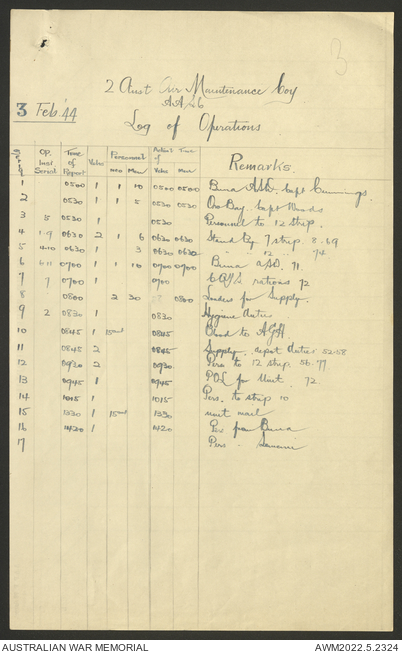 3
2 Aust Air Maintenance Coy
AASC
3 Feb '44
Log of Operations
Op. Inst Serial Time of Report Vehs Personnel NCO Men Action Time of Vehs Men Remarks.
1 0500 1 1 10 0500 0500 Buna ASD. Capt Cummings.
2 0530 1 1 5 0530 0530 Oro Bay. Capt Woods
3 5 0530 1 0530 Personnel to 12 strip.
4 1-9 0630 2 1 6 0630 0630 Stand by 7 strip. 8.69
5 4-10 0630 1 3 0630 0630 " " 12 " 74
6 6-11 0700 1 1 10 0700 0700 Buna ASD. 71.
7 7 0700 1 0700 rations 72
8 0800 2 30 0800 Loaders for Supply.
9 2 0830 1 0830 Hygiene duties
10 0845 1 0845 Blood to AGH
11 0845 2 0845 Supply depot duties 82.58
12 0930 2 0930 Pers to 12 strip 56.77
13 0945 1 0945 POL for Unit. 72.
14 1015 1 1015 Pers. to strip 10
15 1330 1 1330 unit mail
16 1420 1 1420 Pers from Buna
17 Pers
AUSTRALIAN WAR MEMORIAL
AWM2022.5.2324